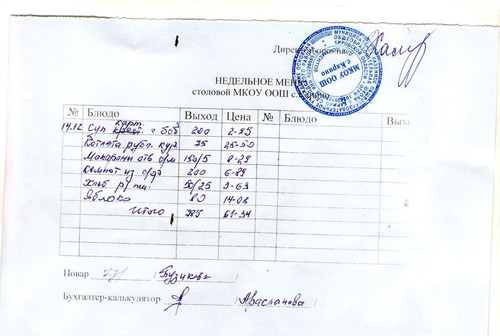 Директор школы
НЕДЕЛЬНОЕ МЕНЮ
столовой МКОУ ООШ с.Карино
№ Блюдо Выход Цена № Блюдо Выхо
14.12 Суп карт. с боб 200 2-85
Котлета рубл. кур 75 25-50
Макарони отв с/м 150/5 8-28
Компот из с/фр 200 6-89
Хлеб р/пш. 50/25 3-63
Яблоко 80 14-08
Итого 785 61-34
Повар Бузикова
Бухгалтер-калькулятор Арасланова
МКОУ ООШ
с.Карино